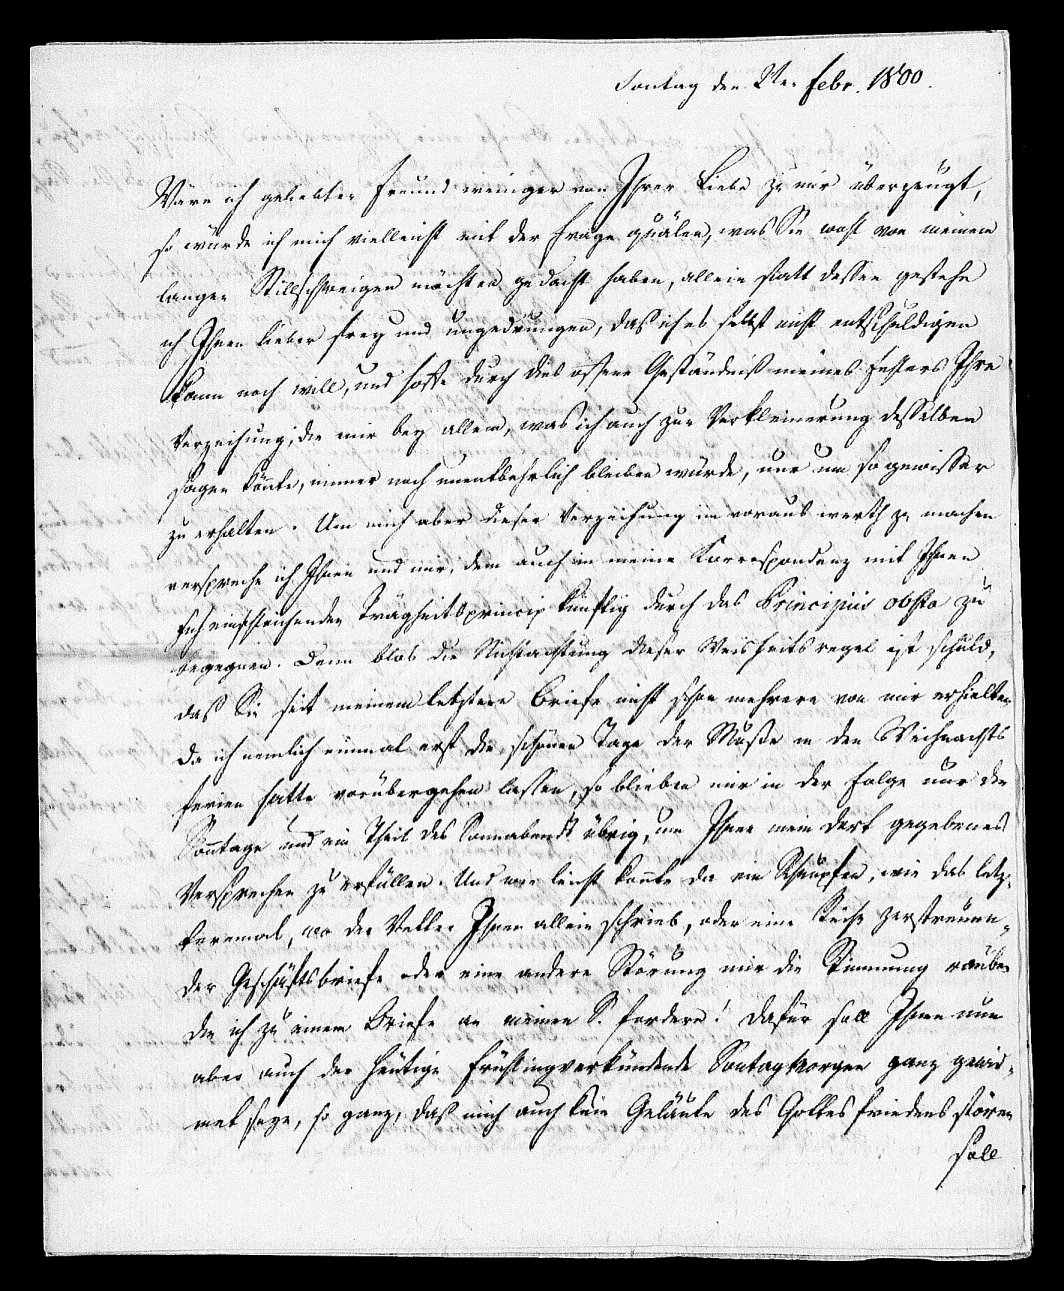 Sontag den 2ten Febr. 1800.
Wäre ich geliebter Freund weniger von Ihrer Liebe zu mir überzeugt,
so würde ich mich vielleicht mit der Frage quälen, was Sie wohl von meinem
langen Stillschweigen möchten gedacht haben, allein statt dessen gestehe
ich Ihnen lieber frey und ungedrungen, daß ich es selbst nicht entschuldigen
kann noch will, und hoffe durch dies offene Geständniß meines Fehlers Ihre
Verzeihung, die mir bey allem, was ich auch zur Verkleinerung desselben
sagen könte, immer noch unentbehrlich bleiben würde, nur um so gewisser
zu erhalten. Um mich aber dieser Verzeihung im voraus werth zu machen
verspreche ich Ihnen und mir, dem auch in meine Correspondenz mit Ihnen
sich einschleichenden Trägheitsprincip künftig durch das Principiis obsta zu
begegnen. Denn blos die Nichtachtung dieser Weisheitsregel ist schuld,
das Sie seit meinem letztern Briefe nicht schon mehrere von mir erhielten
da ich nemlich einmal erst die schönen Tage der Muße in den Weihnachts
ferien hatte vorübergehen lassen, so blieben mir in der Folge nur die
Sontage und ein Theil des Sonnabends übrig, um Ihnen mein dort gegebenes
Versprechen zu erfüllen. Und wie leicht konte da ein Schnupfen, wie das letz-
teremal, wo der Vetter Ihnen allein schrieb, oder eine Reihe zerstreuen-
der Geschäftsbriefe oder eine andere Störung mir die Stimmung rauben
die ich zu einem Briefe an meinen S. fordere! Dafür soll Ihnen nun
aber auch der heutige Frühlingverkündende Sontagmorgen ganz gewid-
met seye, so ganz, daß mich auch kein Geläute des Gottesfriedens stören
soll